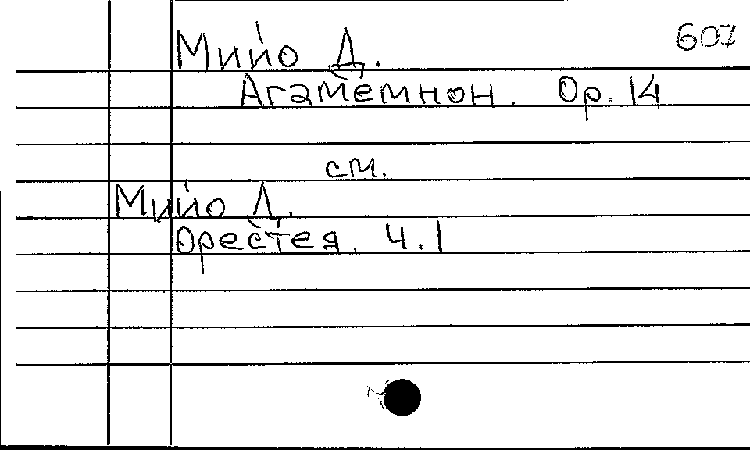 607
Мийо Д.
Агамемнон. Ор. 14
см.
Мийо Д.
Орестея. Ч.1